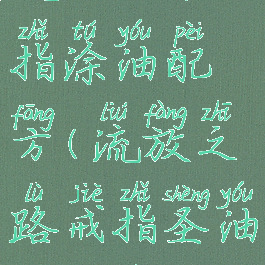 zhǐ tú yóu pèi
指涂油配
fāng liú fàng zhī
方(流放之
lù jiè zhǐ shèng yóu
路戒指圣油